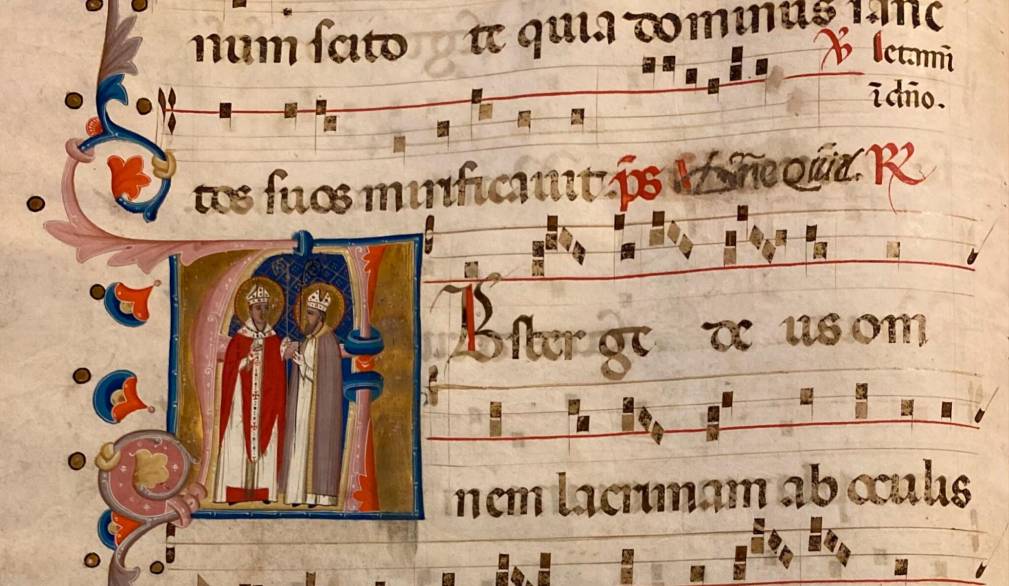 num scito te quia dominus sanc
℣ letamĩ
ĩ dño.
tos suos mirificavit p̃s R̃
Abster get de us om
nem lacrimam ab oculis